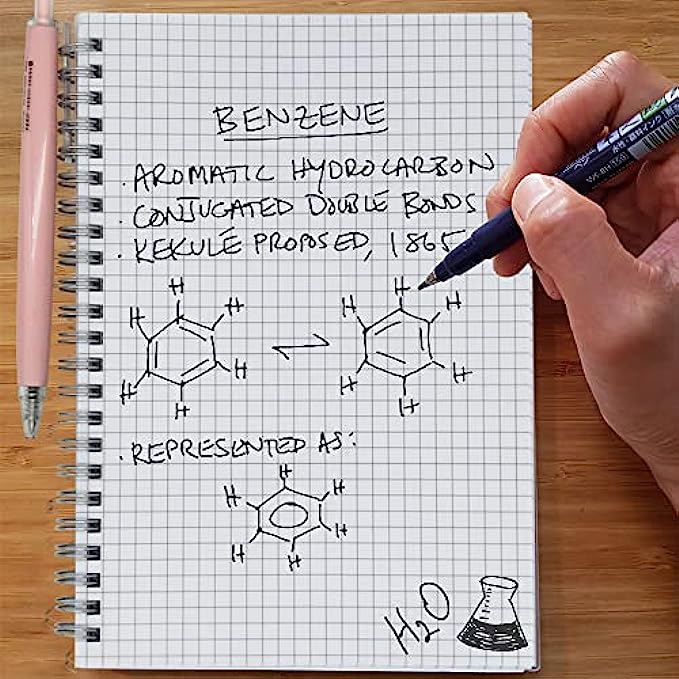 BENZENE
· AROMATIC HYDROCARBON
· CONJUGATED DOUBLE BONDS
· KEKULÉ PROPOSED, 1865
H H
H H
H H
H H
H H
H H
· REPRESENTED AS:
H
H H
H H
H
H2O